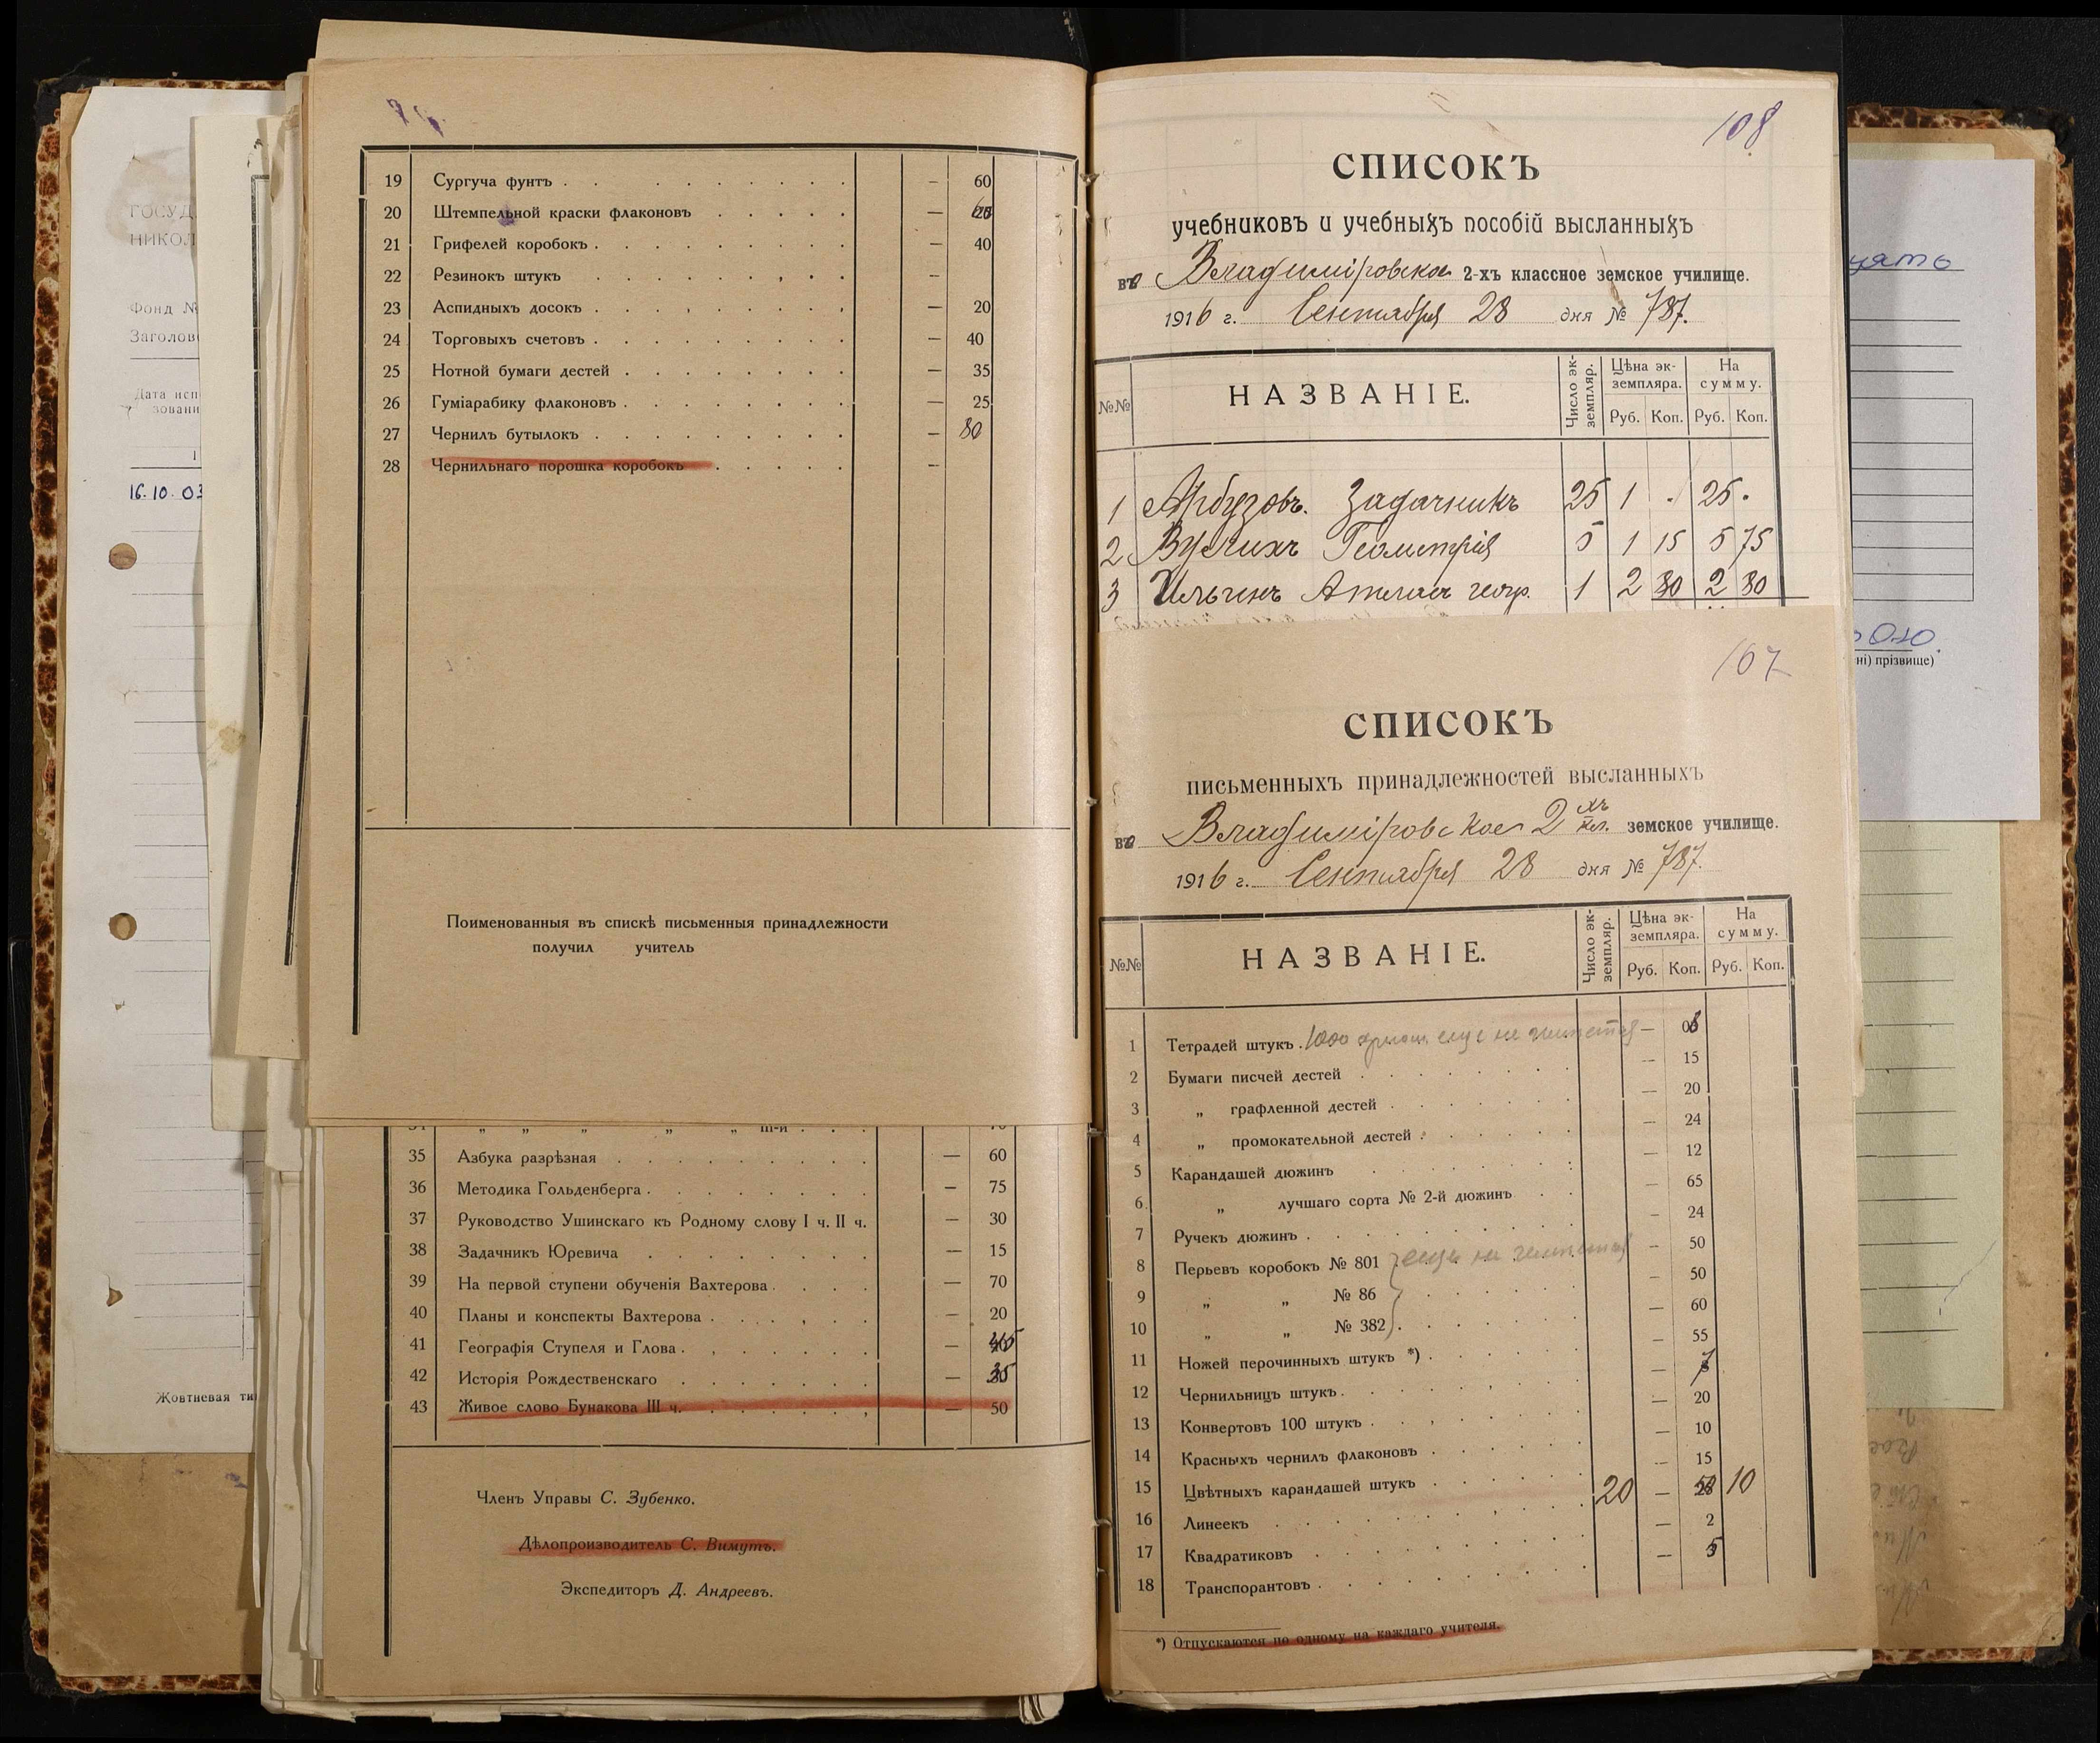 ГОСУД
НИКОЛ
Фонд №
Заголов
Дата исп
зовани
1
16.10.03
Жовтневая ти
19 Сургуча фунтъ — 60
20 Штемпельной краски флаконовъ —
21 Грифелей коробокъ — 40
22 Резинокъ штукъ —
23 Аспидныхъ досокъ — 20
24 Торговыхъ счетовъ — 40
25 Нотной бумаги дестей — 35
26 Гуміарабику флаконовъ — 25
27 Чернилъ бутылокъ — 80
28 Чернильнаго порошка коробокъ —
Поименованныя въ спискѣ письменныя принадлежности
получил учитель
„ „ „ „ „ III-й
35 Азбука разрѣзная — 60
36 Методика Гольденберга — 75
37 Руководство Ушинскаго къ Родному слову I ч. II ч. — 30
38 Задачникъ Юревича — 15
39 На первой ступени обученія Вахтерова — 70
40 Планы и конспекты Вахтерова — 20
41 Географія Ступеля и Глова —
42 Исторія Рождественскаго — 35
43 Живое слово Бунакова III ч. — 50
Членъ Управы С. Зубенко.
Дѣлопроизводитель С. Вимутъ.
Экспедиторъ Д. Андреевъ.
108
СПИСОКЪ
учебниковъ и учебныхъ пособій высланныхъ
въ Владимiровское 2-хъ классное земское училище.
1916 г. Сентября 28 дня № 787.
№№ НАЗВАНІЕ. Число экземпляр. Цѣна экземпляра. На сумму.
Руб. Коп. Руб. Коп.
1 Арбузовъ. Задачникъ 25 1 . 25 .
2 Вулихъ Геометрія 5 1 15 5 75
3 Ильинъ Атласъ геогр. 1 2 80 2 80
107
СПИСОКЪ
письменныхъ принадлежностей высланныхъ
въ Владимiровское 2 хъ кл. земское училище.
1916 г. Сентября 28 дня № 787.
№№ НАЗВАНІЕ. Число экземпляр. Цѣна экземпляра. На сумму.
Руб. Коп. Руб. Коп.
1 Тетрадей штукъ . 1000 еще не имется — 08
2 Бумаги писчей дестей — 15
3 „ графленной дестей — 20
4 „ промокательной дестей — 24
5 Карандашей дюжинъ — 12
6 „ лучшаго сорта № 2-й дюжинъ — 65
7 Ручекъ дюжинъ — 24
8 Перьевъ коробокъ № 801 еще не имется — 50
9 „ „ № 86 — 50
10 „ „ № 382 — 60
11 Ножей перочинныхъ штукъ *) — 55
12 Чернильницъ штукъ — 7
13 Конвертовъ 100 штукъ — 20
14 Красныхъ чернилъ флаконовъ — 10
15 Цвѣтныхъ карандашей штукъ — 15
16 Линеекъ 20 — 50 10
17 Квадратиковъ — 2
18 Транспорантовъ — 5
*) Отпускаются по одному на каждаго учителя.
цять
ні) прізвище)